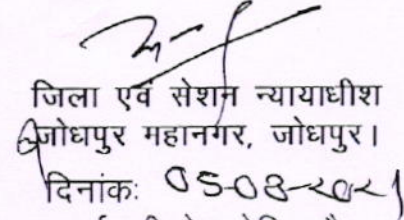 जिला एवं सेशन न्यायाधीश
जोधपुर महानगर, जोधपुर।
दिनांकः 05-08-2021